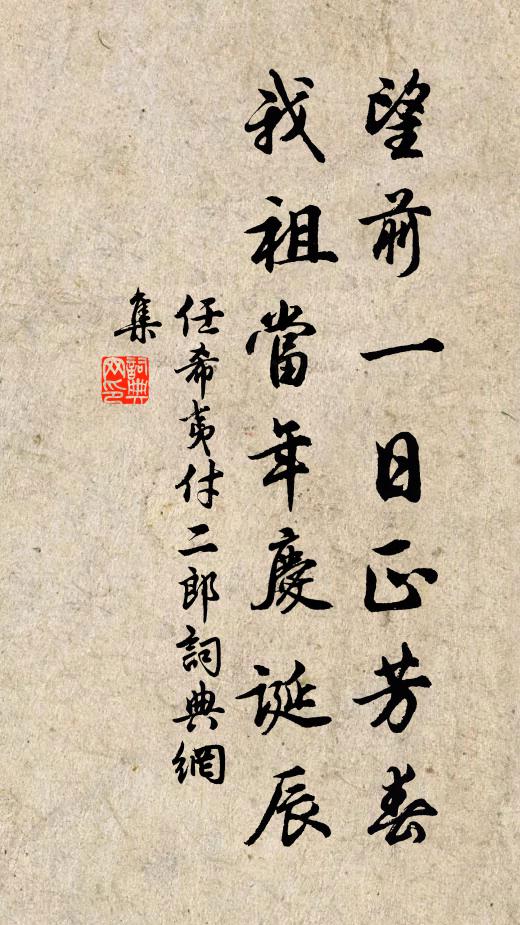 望前一日正芳春
我祖當年慶誕辰
任希夷付二郎詞典網
集
詞典網印